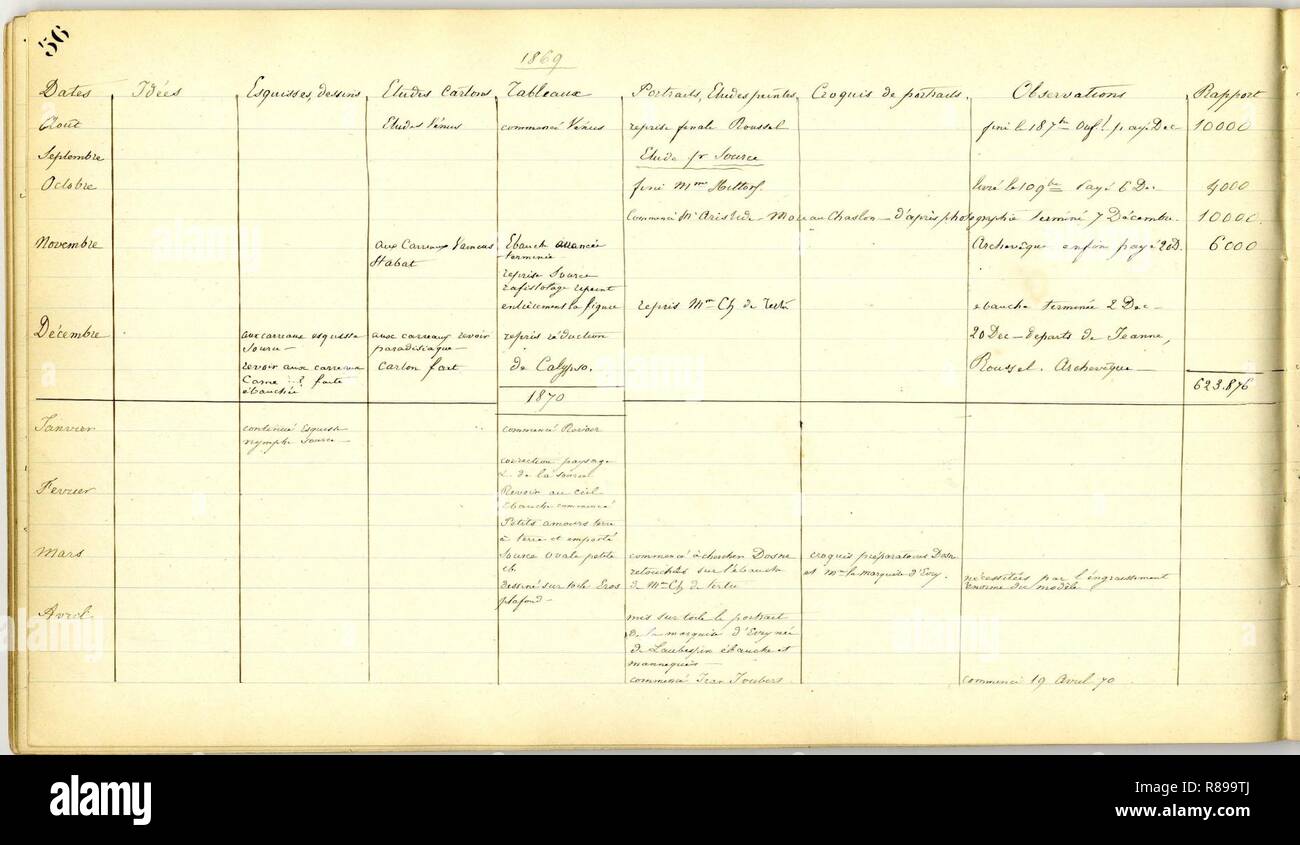 56
1869
Dates Idées Esquisses, dessins Etudes Cartons Tableaux Portraits, Etudes peintes Croquis de portraits. Observations Rapport
Août Etudes Vénus commencé Vénus reprise finale Roussel fini le payé Dec 10000
Septembre Etude pr Source
Octobre fini Mme Hittorf. livré le 10 9bre Payé 6 Dec 4000
Commencé Mr Aristide Moreau Chaslon d'après photographie terminé 7 Décembre. 10000.
Novembre aux Carreaux Ebauche avancée Archevêque enfin payé 20 D. 6000
Stabat terminée
reprise Source
rafistolage repeint
entièrement la figure repris Mme Ch de Tertre ebauche terminée 2 Dec
Décembre aux carreaux esquisse aux carreaux revoir repris réduction 20 Dec departs de Jeanne,
Source paradisiaque
revoir aux carreaux Carton fait de Calypso. Roussel. Archevêque
faite 623.876
ébauchée 1870
Janvier continué Esquisse commencé Revoir
nymphe Source
correction paysage
de la source
Fevrier Revoir au ciel
ébauche commencé
Petits amours terre
à terre et emporté
Mars Source ovale petite commencé à chercher Dosne croquis préparatoires Dosne
ch. retouches sur l'ébauche et Mme la marquise d'Evry. nécessitées par l'engraissement
Dessiné sur toile Eros de Mme Ch de tertre énorme du modèle
plafond
Avril mis sur toile le portrait
de la marquise d'Evry née
de Laubespin ébauche et
mannequin
commencé Jean Joubert commencé 19 Avril 70
alamy
a
alamy
Image ID: R899TJ
www.alamy.com